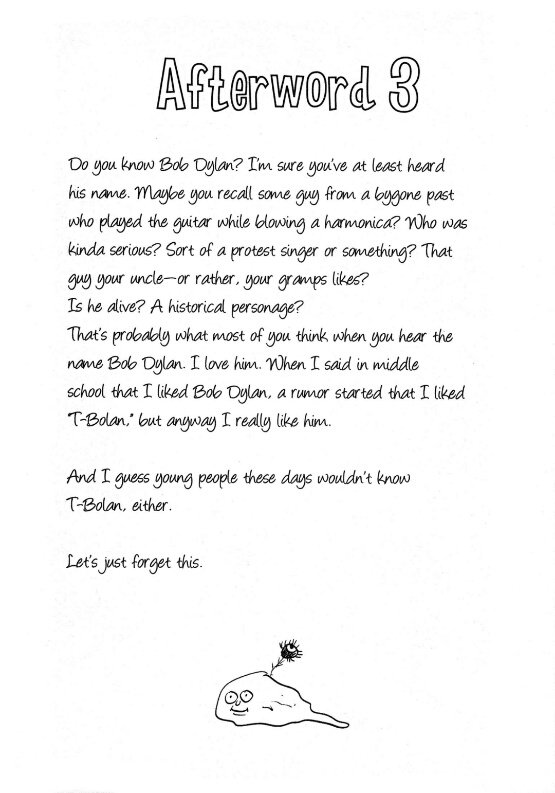 Afterword 3
Do you know Bob Dylan? I'm sure you've at least heard
his name. Maybe you recall some guy from a bygone past
who played the guitar while blowing a harmonica? Who was
kinda serious? Sort of a protest singer or something? That
guy your uncle—or rather, your gramps likes?
Is he alive? A historical personage?
That's probably what most of you think when you hear the
name Bob Dylan. I love him. When I said in middle
school that I liked Bob Dylan, a rumor started that I liked
"T-Bolan," but anyway I really like him.
And I guess young people these days wouldn't know
T-Bolan, either.
Let's just forget this.